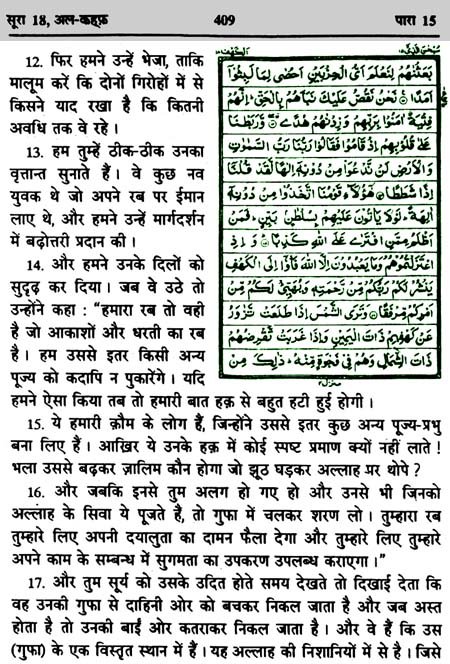 सूरा 18, अल-कहफ़ 409 पारा 15
12. फिर हमने उन्हें भेजा, ताकि
मालूम करें कि दोनों गिरोहों में से
किसने याद रखा है कि कितनी
अवधि तक वे रहे ।
13. हम तुम्हें ठीक-ठीक उनका
वृत्तान्त सुनाते हैं । वे कुछ नव
युवक थे जो अपने रब पर ईमान
लाए थे, और हमने उन्हें मार्गदर्शन
में बढ़ोत्तरी प्रदान की ।
14. और हमने उनके दिलों को
सुदृढ़ कर दिया । जब वे उठे तो
उन्होंने कहा : “हमारा रब तो वही
है जो आकाशों और धरती का रब
है । हम उससे इतर किसी अन्य
पूज्य को कदापि न पुकारेंगे । यदि
بَعَثْنٰهُمْ لِنَعْلَمَ اَيُّ الْحِزْبَيْنِ اَحْصٰى لِمَا لَبِثُوْٓا
اَمَدًا نَحْنُ نَقُصُّ عَلَيْكَ نَبَاَهُمْ بِالْحَقِّ اِنَّهُمْ
فِتْيَةٌ اٰمَنُوْا بِرَبِّهِمْ وَزِدْنٰهُمْ هُدًى وَّرَبَطْنَا
عَلٰى قُلُوْبِهِمْ اِذْ قَامُوْا فَقَالُوْا رَبُّنَا رَبُّ السَّمٰوٰتِ
وَالْاَرْضِ لَنْ نَّدْعُوَا۟ مِنْ دُوْنِهٖٓ اِلٰهًا لَّقَدْ قُلْنَآ
اِذًا شَطَطًا هٰٓؤُلَآءِ قَوْمُنَا اتَّخَذُوْا مِنْ دُوْنِهٖٓ
اٰلِهَةً لَوْلَا يَاْتُوْنَ عَلَيْهِمْ بِسُلْطٰنٍ بَيِّنٍ فَمَنْ
اَظْلَمُ مِمَّنِ افْتَرٰى عَلَى اللّٰهِ كَذِبًا وَاِذِ
اعْتَزَلْتُمُوْهُمْ وَمَا يَعْبُدُوْنَ اِلَّا اللّٰهَ فَاْوٗٓا اِلَى الْكَهْفِ
يَنْشُرْ لَكُمْ رَبُّكُمْ مِّنْ رَّحْمَتِهٖ وَيُهَيِّئْ لَكُمْ مِّنْ
اَمْرِكُمْ مِّرْفَقًا وَتَرَى الشَّمْسَ اِذَا طَلَعَتْ تَّزٰوَرُ
عَنْ كَهْفِهِمْ ذَاتَ الْيَمِيْنِ وَاِذَا غَرَبَتْ تَّقْرِضُهُمْ
ذَاتَ الشِّمَالِ وَهُمْ فِيْ فَجْوَةٍ مِّنْهُ ذٰلِكَ مِنْ
हमने ऐसा किया तब तो हमारी बात हक़ से बहुत हटी हुई होगी ।
15. ये हमारी क़ौम के लोग हैं, जिन्होंने उससे इतर कुछ अन्य पूज्य-प्रभु
बना लिए हैं । आख़िर ये उनके हक़ में कोई स्पष्ट प्रमाण क्यों नहीं लाते !
भला उससे बढ़कर ज़ालिम कौन होगा जो झूठ घड़कर अल्लाह पर थोपे ?
16. और जबकि इनसे तुम अलग हो गए हो और उनसे भी जिनको
अल्लाह के सिवा ये पूजते हैं, तो गुफा में चलकर शरण लो । तुम्हारा रब
तुम्हारे लिए अपनी दयालुता का दामन फैला देगा और तुम्हारे लिए तुम्हारे
अपने काम के सम्बन्ध में सुगमता का उपकरण उपलब्ध कराएगा ।”
17. और तुम सूर्य को उसके उदित होते समय देखते तो दिखाई देता कि
वह उनकी गुफा से दाहिनी ओर को बचकर निकल जाता है और जब अस्त
होता है तो उनकी बाईं ओर कतराकर निकल जाता है । और वे हैं कि उस
(गुफा) के एक विस्तृत स्थान में हैं । यह अल्लाह की निशानियों में से है । जिसे